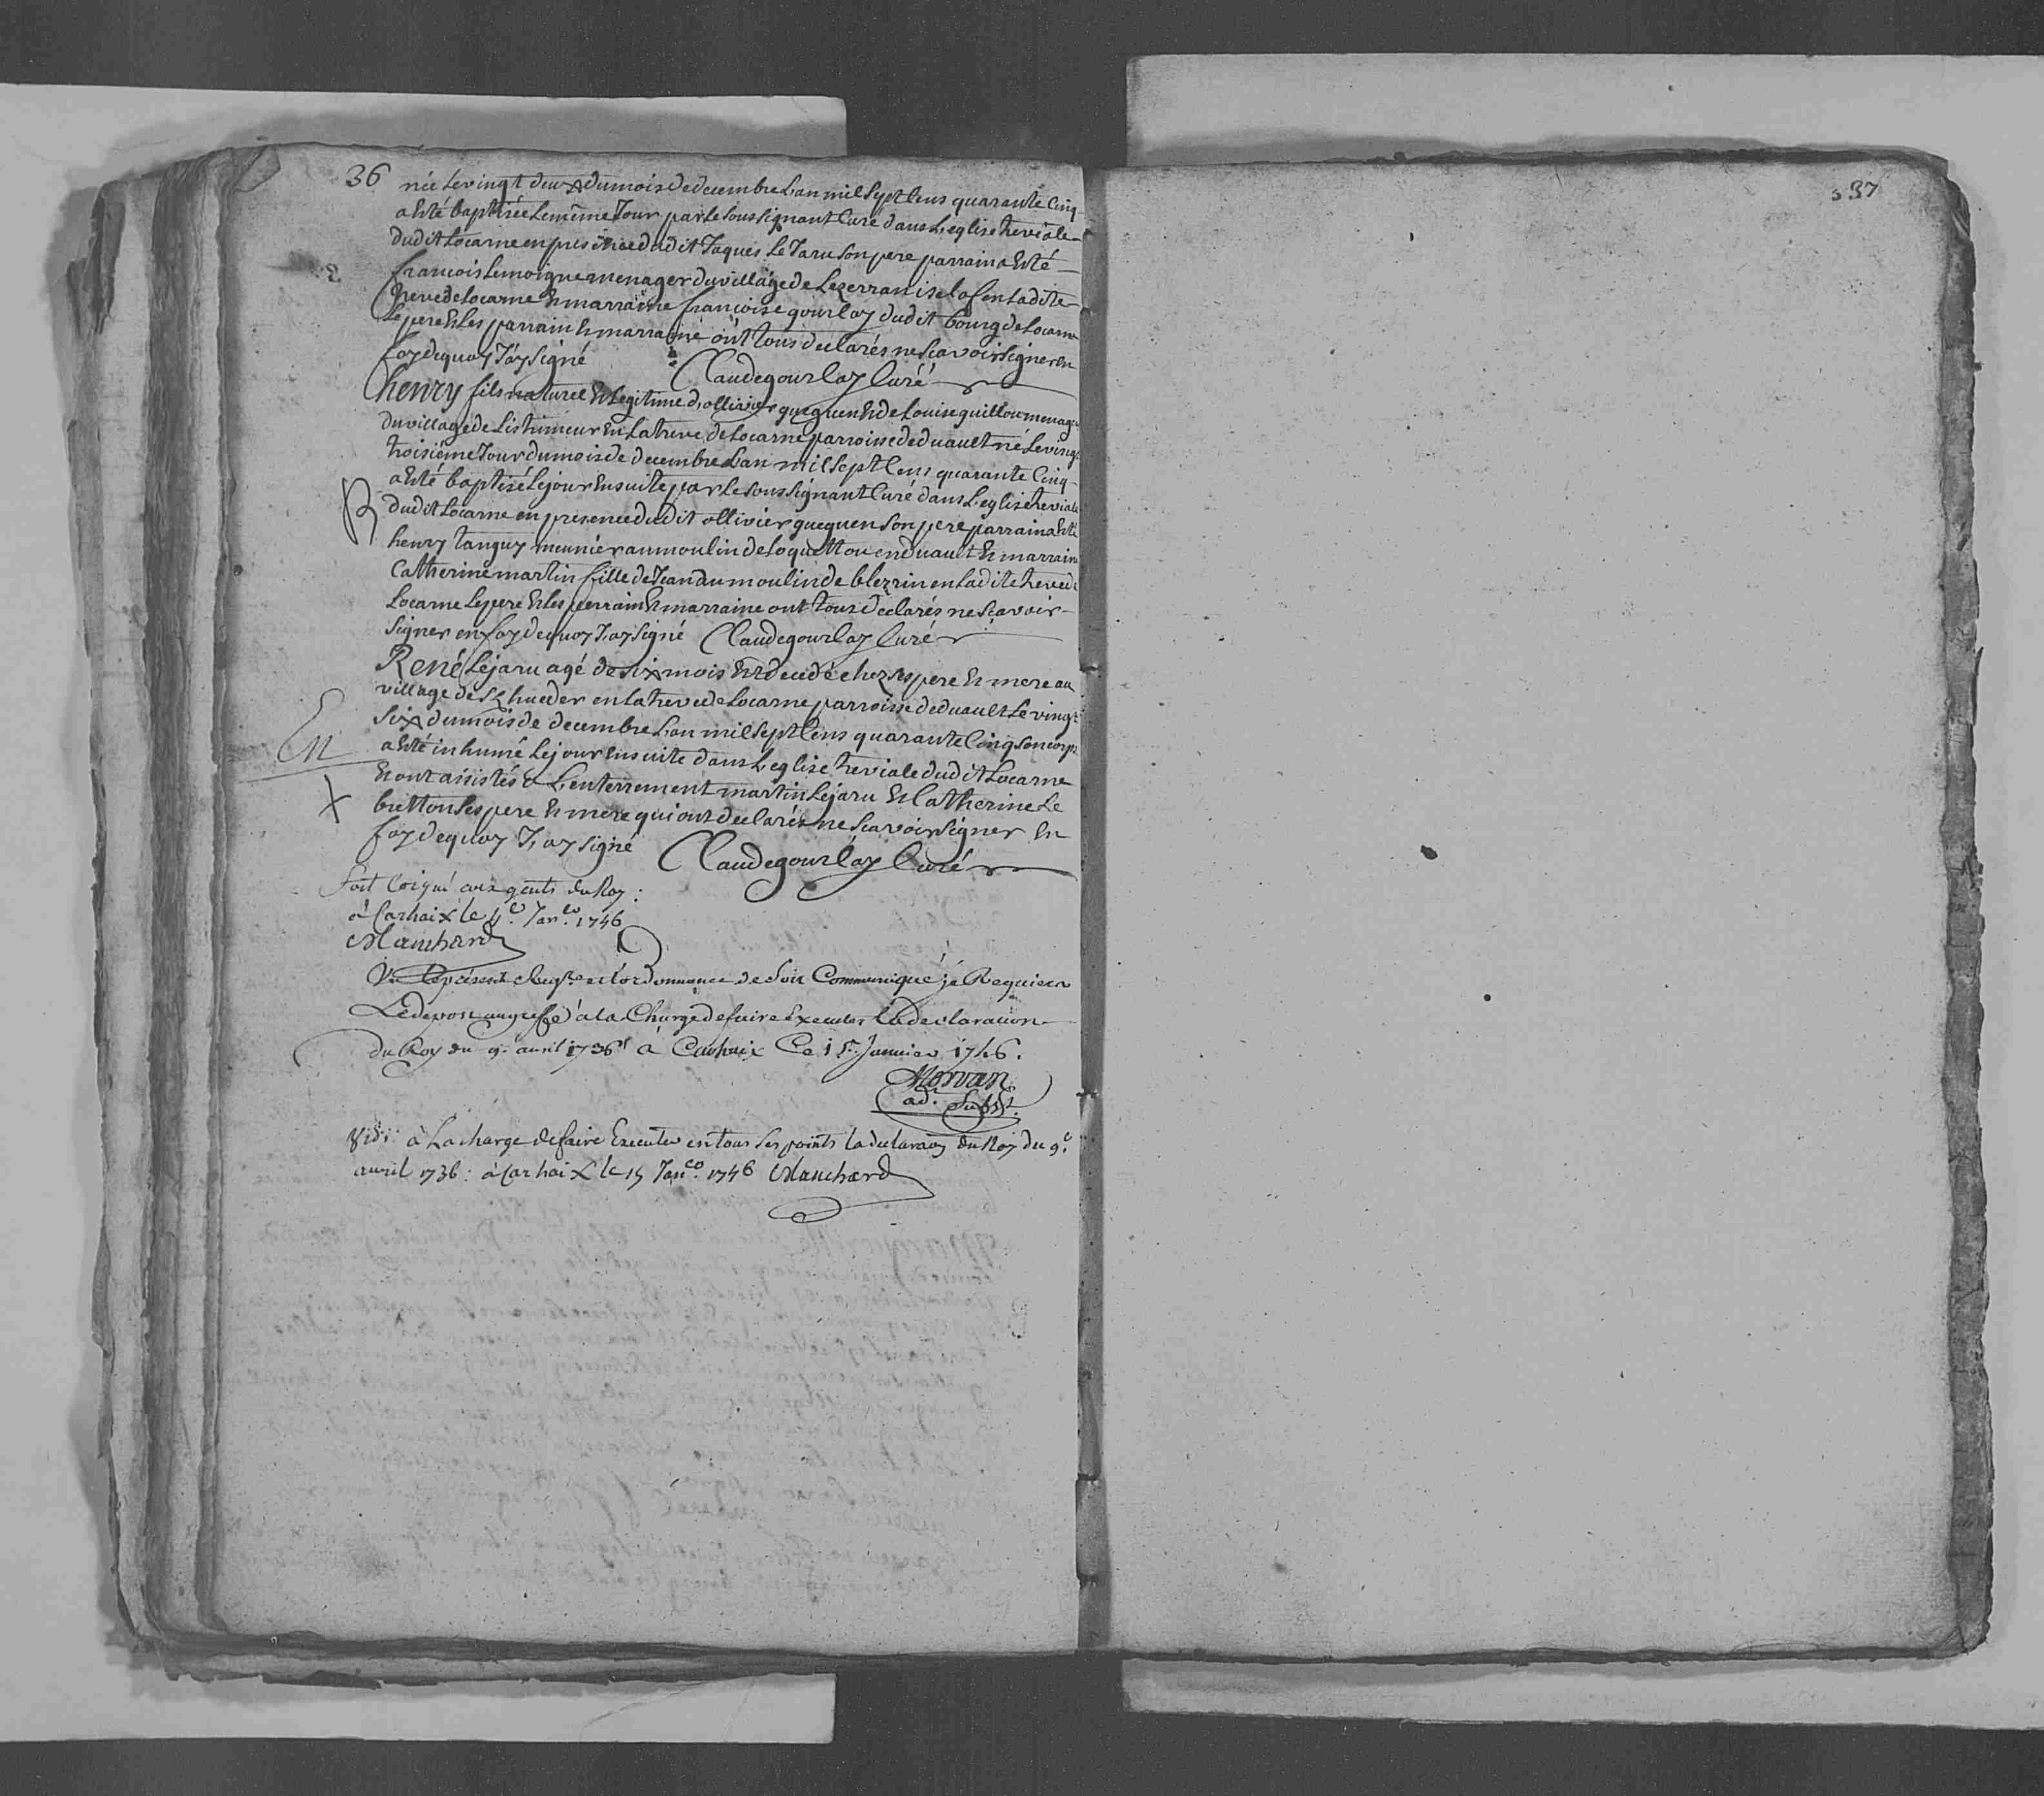 36
née le vingt deux du mois de decembre L'an mil Sept Cens quarante Cinq
a Esté baptisée le même Jour par le Soussignant Curé dans L'eglise treviale
dudit Locarne en presence dudit Jaques Le Jaru Son pere parrain a Esté
francois Lemoigne menager du village de en Ladite
treve de Locarne Et marraine francoise gourlay dudit bourg de Locarne
Le pere Et Les parrain Et marraine ont tous declarés ne Scavoir Signer en
foy de quoy J'ay Signé Claude gourlay Curé
henry fils naturel Et Legitime d'ollivier gueguen Et de Louise guillou menag
du village de Listrimeur En La treve de Locarne parroisse de duault né Le vingt
troisiéme Jour du mois de decembre L'an mil Sept Cens quarante Cinq
a Esté baptisé Le jour Ensuite par Le Soussignant Curé dans L'eglise treviale
B
dudit Locarne en presence dudit ollivier gueguen Son pere parrain a Esté
henry tanguy meunier au moulin de Loquetton en duault Et marraine
Catherine martin fille de Jean du moulin de blezrin en Ladite treve de
Locarne Le pere Et Les parrain Et marraine ont tous declarés ne Scavoir
Signer en foy de quoy J'ay Signé Claude gourlay Curé
René Le jaru agé de Six mois Est decedé chez Ses pere Et mere au
village de en La treve de Locarne parroisse de duault Le vingt
Six du mois de decembre L'an mil Sept Cens quarante Cinq Son corps
En
a Esté inhumé Le jour Ensuite dans L'eglise treviale dudit Locarne
Et ont assistés à L'enterrement martin Le jaru Et Catherine Le
X
bretton Ses pere Et mere qui ont declarés ne Scavoir Signer En
foy de quoy J'ay Signé Claude gourlay Curé
Soit aux gents du Roy :
à Carhaix le Janv. 1746
Blanchard
Vu Le présent Regre et l'ordonnance de Soit Communiqué je Requiers
Le depost au greffe à la Charge de faire Executer La declaration
du Roy du 9. avril 1736 à Carhaix Ce 15 Janvier 1746.
Morvan
ad. Subst.
à La charge de faire Executer en tous Ses points la declaraõn du Roy du 9e
avril 1736 : à Carhaix le 15 Janv. 1746 Blanchard
37